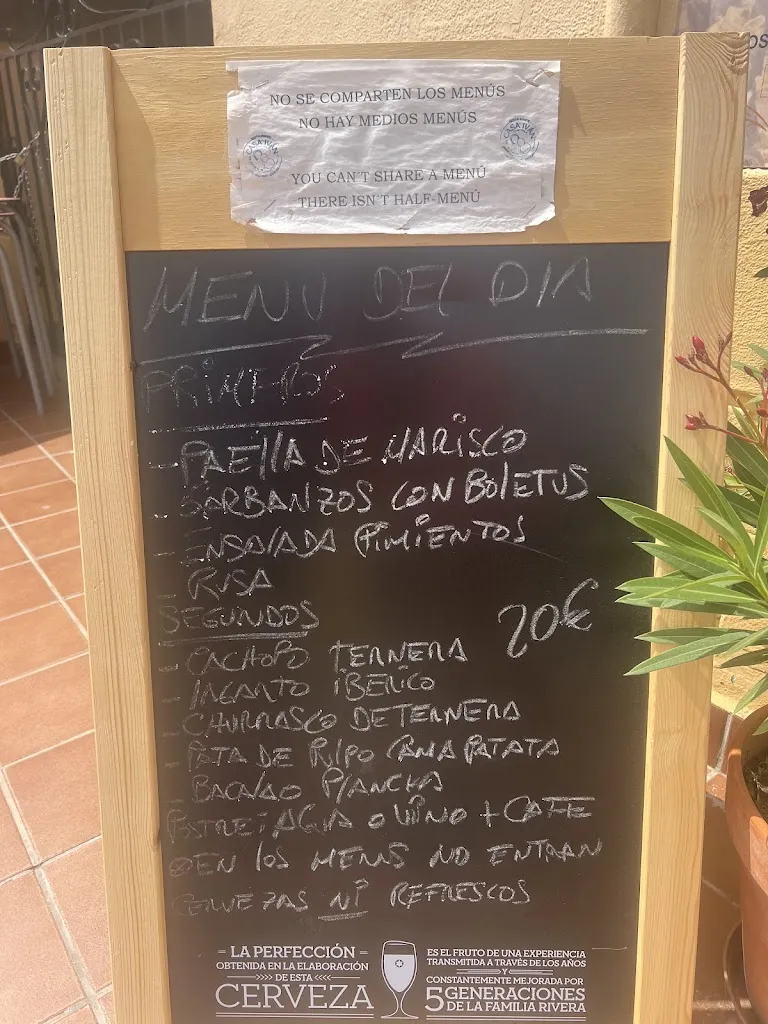 NO SE COMPARTEN LOS MENÚS
NO HAY MEDIOS MENÚS
CASA IVÁN
CASA IVÁN
YOU CAN'T SHARE A MENÚ
THERE ISN'T HALF-MENÚ
MENU DEL DIA
PRIMEROS
- PAELLA DE MARISCO
- GARBANZOS CON BOLETUS
- ENSALADA PIMIENTOS
- RUSA
SEGUNDOS
20€
- CACHOPO TERNERA
- IBERICO
- CHURRASCO DE TERNERA
- PATA DE CAMA PATATA
- BACALAO PLANCHA
POSTRE AGUA O VINO + CAFE
EN LOS MENUS NO ENTRAN
CERVEZAS NI REFRESCOS
- LA PERFECCIÓN -
OBTENIDA EN LA ELABORACIÓN
DE ESTA
CERVEZA
ES EL FRUTO DE UNA EXPERIENCIA
TRANSMITIDA A TRAVÉS DE LOS AÑOS
Y
CONSTANTEMENTE MEJORADA POR
5 GENERACIONES
DE LA FAMILIA RIVERA